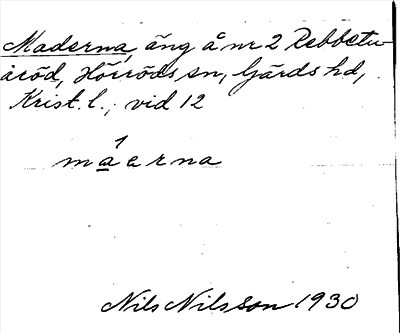 Maderna, äng å nr 2 Rebbetu-
aröd, Hörröds sn, Gärds hd,
Krist. l., vid 12
1
maerna
Nils Nilsson 1930